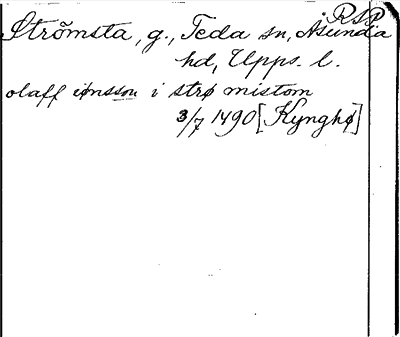 RSP
Strömsta, g., Teda sn, Åsunda
hd, Upps. l.
olaff iønsson i strø mistom
3/7 1490 [Kynghø]